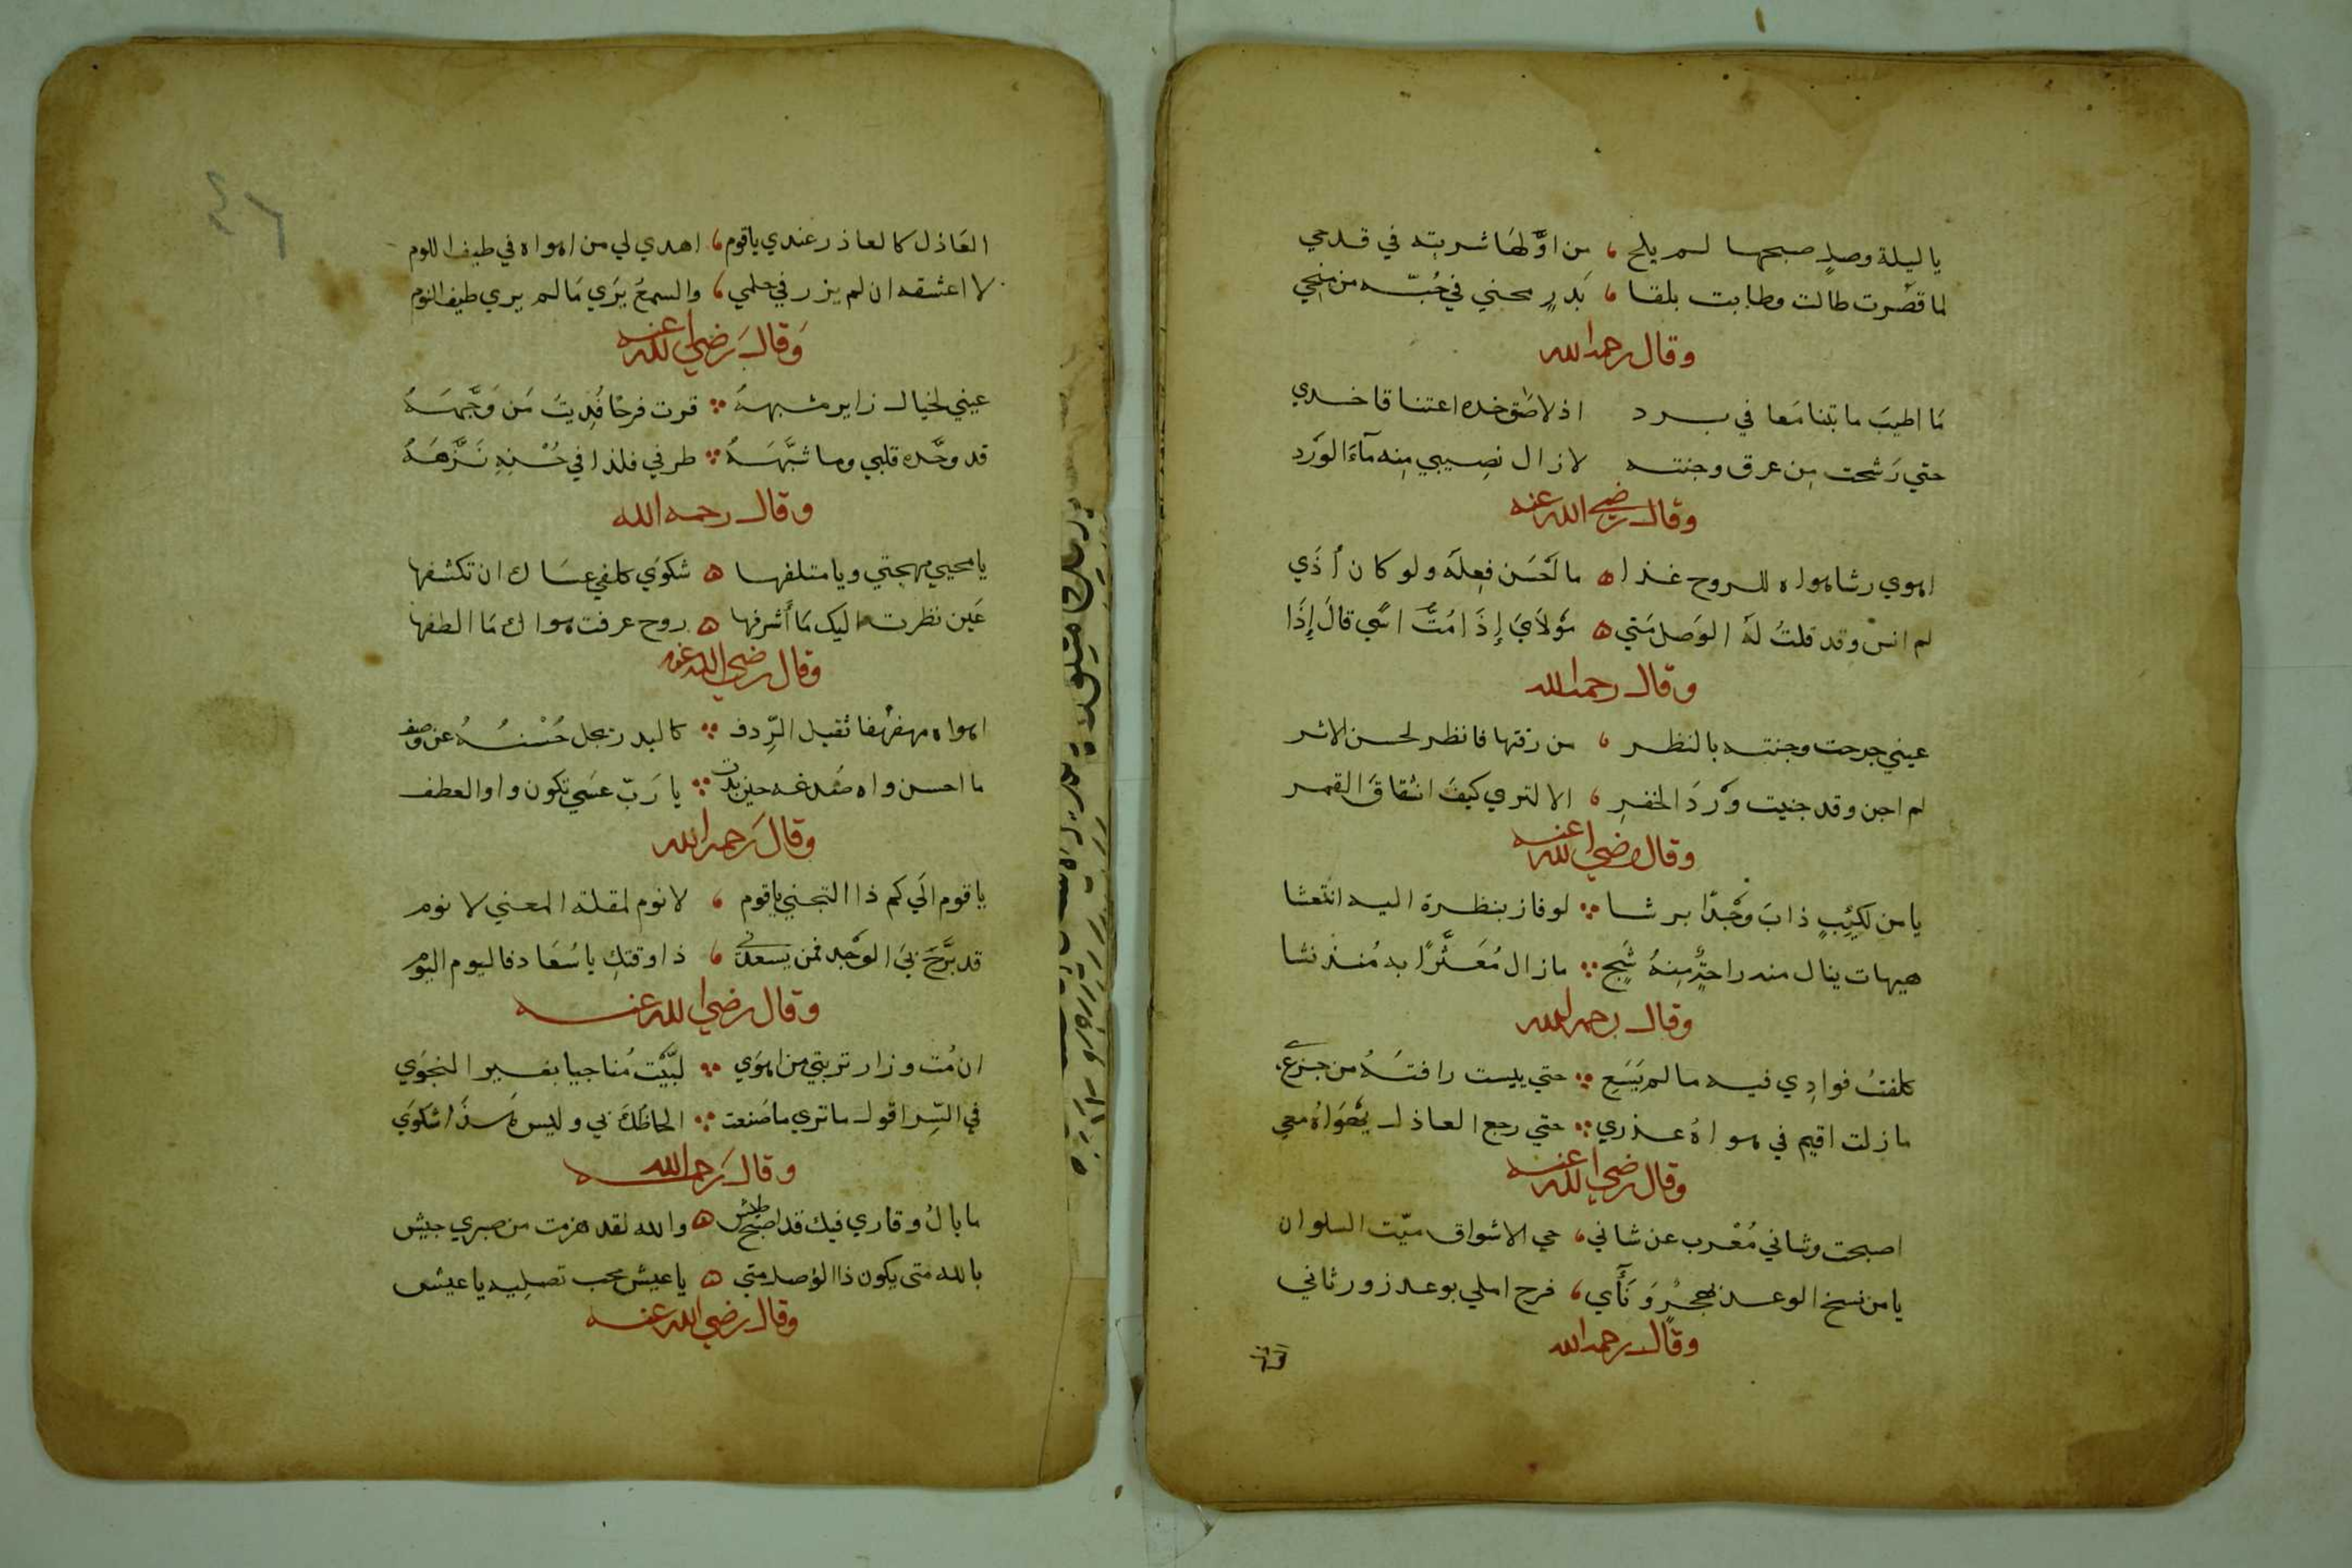 يا ليلة وصلٍ صبحها لم يلح ، من اوّلها شربته في قدحي
لما قصرت طالت وطابت بلقا ، بَدرٍ محني في حُبّه من منحي
وقال رحمه الله
مَا اطيبَ ما بتنا مَعا في برد اذ لاصَق خده اعتناقا خدي
حتي رَشحت مِن عرق وجنته لا زال نصِيبي مِنه مآءَ الوَرد
وقال رضي الله عنه
اهوي رشا هواه للروح غذا ه ما اَحْسَن فِعلَه ولو كان اُذَي
لم انس وقد قلتُ لَهُ الوَصل مَتي ه مَولَايَ إِذَا مُتَّ اسًي قالَ إِذَا
وقال رحمه الله
عيني جرحت وجنته بالنظر ، من رقتها فانظر لحسن الاثر
لم اجن وقد جنيت وَرْدَ الخفرِ ، الا لتري كيفَ انشقاق القمر
وقال رضي الله عنه
يا من لكئيبٍ ذابَ وَجْدًا برشا ∴ لو فاز بنظرة اليه انتعشا
هيهات ينال منه راحةً مِنهُ شَجٍ ∴ ما زال مُعَثَّرًا به مُنذ نشا
وقال رحمه الله
كلفتُ فوادِي فيه ما لم يَسَعِ ∴ حتي يئست رافتَهُ من جزعي
ما زلت اقيم في هواهُ عذري ∴ حتي رجع العاذل يَهْوَاهُ معي
وقال رضي الله عنه
اصبحت وشاني مُعْرب عن شاني ، حي الاشواق ميّت السلوان
يا من نسخ الوعد بهجرٍ وَنَأَي ، فرح املي بوعد زور ثاني
وقال رحمه الله
العَاذل
العَاذل كالعاذر عندي يا قوم ، اهدي لي من اهواه في طيف اللوم
لا اعشقه ان لم يزر في حلمي ، والسمعُ يَرَي مَا لم يري طيف النوم
وَقال رَضي الله عنه
عيني لخيال زاير مشبههُ ∴ قرت فرحًا فُدِيتُ مَن وَجَّهَهُ
قد وحَّده قلبي وما شَبَّهَهُ ∴ طرفي فلذا في حُسْنِهِ نَزَّهَهُ
وقال رحمه الله
يا محيي مهجتي ويا متلفها ه شكوَي كلفي عسَاك ان تكشفها
عَين نظرت اليك مَا أَشرفها ه روح عرفت هواك مَا الطفها
وقال رضي الله عنه
اهواه مهفهفا ثقيل الرِّدف ∴ كالبدر يجل حُسْنُهُ عن وصف
ما احسن واو صُدغه حين بدت ∴ يا رَبّ عسَي تكون واو العطف
وقال رَحمه الله
يا قوم الَي كم ذا التجني يا قوم ، لا نوم لمقلة المعني لا نوم
قد بَرَّحَ بيَ الوَجد فمن يسعدني ، ذا وقتكِ يا سُعَاد فاليوم اليَوم
وقال رضي الله عنه
ان مُت وزار تربتي من اهوَي ∴ لبَّيْت مُناجيا بغير النجوَي
في السِّر اقول ما تري ما صَنعت ∴ الحاظُكَ بي وليس هَذَا شكوَي
وقال رَحمه الله
ما بالُ وقاري فيك قد اصبح طيش ه والله لقد هزمت من صبري جيش
بالله متى يكون ذا الوَصل متي ه يا عيش محب تصلِيه يا عيش
وقال رضي الله عنه